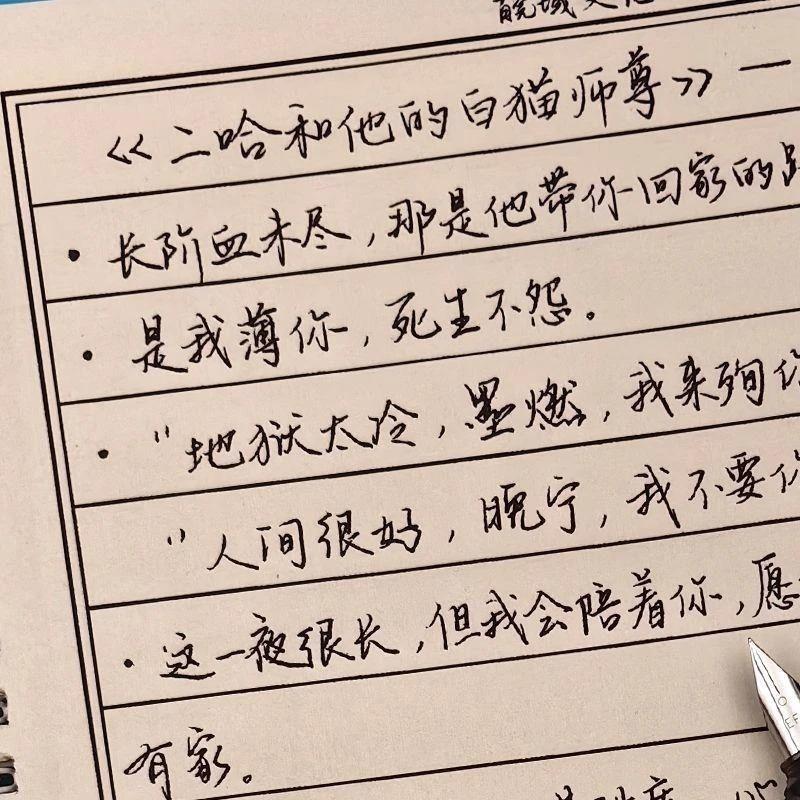 《二哈和他的白猫师尊》一
· 长阶血未尽，那是他带你回家的
· 是我薄你，死生不怨。
· "地狱太冷，墨燃，我来殉你
"人间很好，晚宁，我不要你
· 这一夜很长，但我会陪着你，愿
有家。